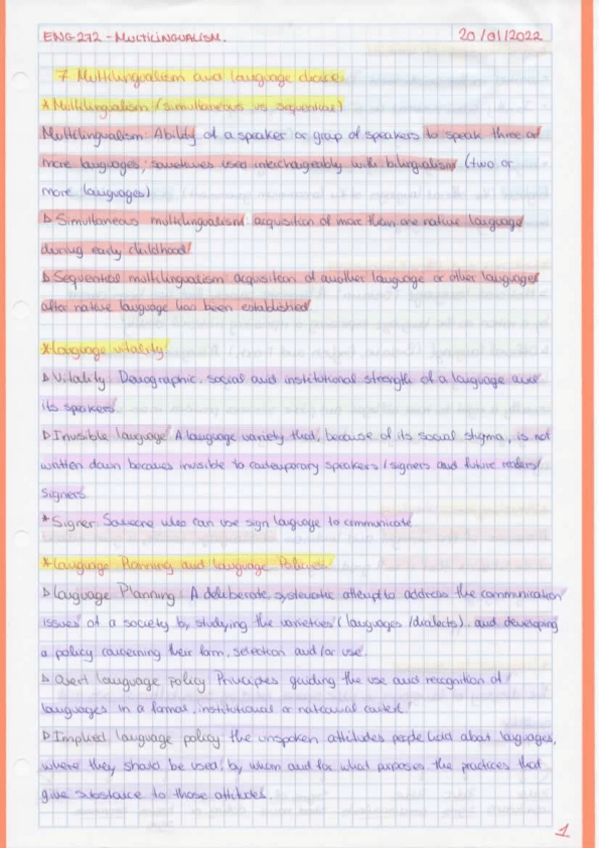 ENG 272 - MULTILINGUALISM.
20/01/2022
7 Multilingualism and language choice
* Multilingualism (simultaneous vs sequential)
Multilingualism: Ability of a speaker or group of speakers to speak three or
more languages; sometimes used interchangeably with bilingualism (two or
more languages)
▷ Simultaneous multilingualism: acquisition of more than one native language
during early childhood.
▷ Sequential multilingualism: acquisition of another language or other languages
after native language has been established.
* Language vitality
▷ Vitality: Demographic, social and institutional strength of a language and
its speakers.
▷ Invisible language: A language variety that, because of its social stigma, is not
written down becomes invisible to contemporary speakers / signers and future readers/
signers.
* Signer: Someone who can use sign language to communicate.
* Language Planning and Language Policies.
▷ Language Planning: A deliberate, systematic attempt to address the communication
issues of a society by studying the varieties (languages /dialects), and developing
a policy concerning their form, selection and/or use.
▷ Overt language policy: Principles guiding the use and recognition of
languages in a formal, institutional or national context.
▷ Implied language policy: the unspoken attitudes people hold about languages,
where they should be used, by whom and for what purposes the practices that
give substance to those attitudes.
1